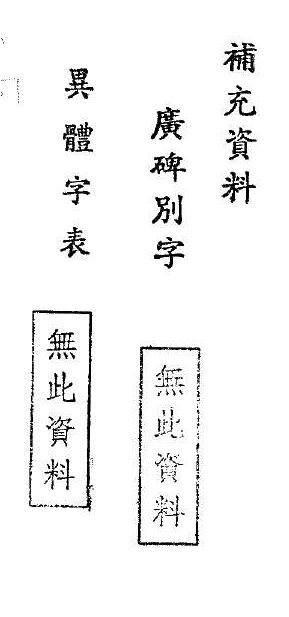 補充資料
廣碑別字
無此資料
異體字表
無此資料